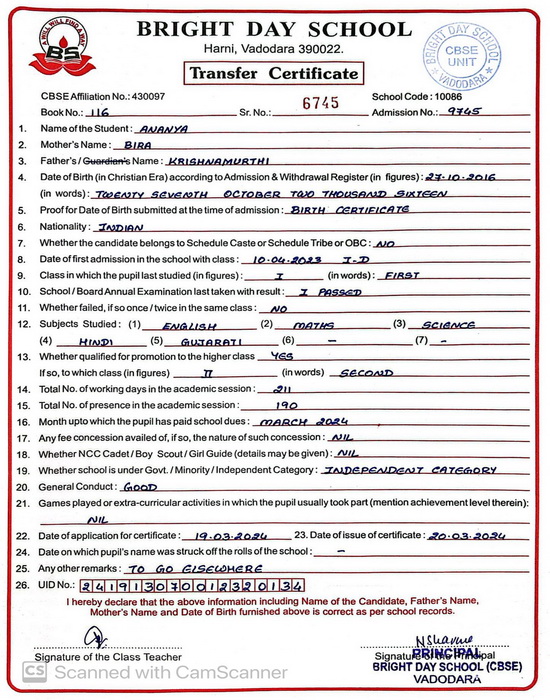 A WILL WILL FIND A WAY
BS
BRIGHT DAY SCHOOL
Harni, Vadodara 390022.
Transfer Certificate
BRIGHT DAY SCHOOL
CBSE
UNIT
VADODARA
CBSE Affiliation No.: 430097 School Code : 10086
Book No.: 116 Sr. No.: 6745 Admission No.: 9745
1. Name of the Student : ANANYA
2. Mother's Name : BIRA
3. Father's / Guardian's Name : KRISHNAMURTHI
4. Date of Birth (in Christian Era) according to Admission & Withdrawal Register (in figures) : 27-10-2016
(in words) : TWENTY SEVENTH OCTOBER TWO THOUSAND SIXTEEN
5. Proof for Date of Birth submitted at the time of admission : BIRTH CERTIFICATE
6. Nationality : INDIAN
7. Whether the candidate belongs to Schedule Caste or Schedule Tribe or OBC : NO
8. Date of first admission in the school with class : 10-04-2023 I-D
9. Class in which the pupil last studied (in figures) : I (in words) : FIRST
10. School / Board Annual Examination last taken with result : I PASSED
11. Whether failed, if so once / twice in the same class : NO
12. Subjects Studied : (1) ENGLISH (2) MATHS (3) SCIENCE
(4) HINDI (5) GUJARATI (6) - (7) -
13. Whether qualified for promotion to the higher class YES
If so, to which class (in figures) II (in words) SECOND
14. Total No. of working days in the academic session : 211
15. Total No. of presence in the academic session : 190
16. Month upto which the pupil has paid school dues : MARCH 2024
17. Any fee concession availed of, if so, the nature of such concession : NIL
18. Whether NCC Cadet / Boy Scout / Girl Guide (details may be given) : NIL
19. Whether school is under Govt. / Minority / Independent Category : INDEPENDENT CATEGORY
20. General Conduct : GOOD
21. Games played or extra-curricular activities in which the pupil usually took part (mention achievement level therein):
NIL
22. Date of application for certificate : 19.03.2024 23. Date of issue of certificate : 20-03-2024
24. Date on which pupil's name was struck off the rolls of the school : -
25. Any other remarks : TO GO ELSEWHERE
26. UID No.: 241913070012320134
I hereby declare that the above information including Name of the Candidate, Father's Name,
Mother's Name and Date of Birth furnished above is correct as per school records.
Signature of the Class Teacher
Signature of the Principal
PRINCIPAL
BRIGHT DAY SCHOOL (CBSE)
VADODARA
CS Scanned with CamScanner